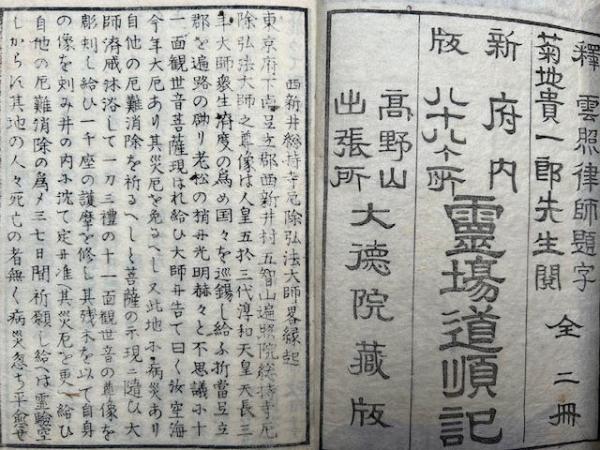 釋雲照律師題字
菊地貴一郎先生閲 全二冊
新版 府内八十八ヶ所 靈場道順記
高野山出張所 大德院藏版
西新井総持寺厄除弘法大師畧縁起
東京府下南足立郡西新井村五智山遍照院総持寺厄
除弘法大師之尊像は人皇五拾三代淳和天皇天長三
年大師衆生済度の為め国々を巡錫し給ふ折當足立
郡を遍路の砌り老松の梢み光明赫々と不思議や十
一面觀世音菩薩現はれ給ひ大師み告て曰く汝空海
今年大厄あり其災厄を免るへし又此地み病災あり
自他の厄難消除を祈るへしと菩薩の示現み隨ひ大
師斎戒沐浴して一刀三禮の十一面觀世音の尊像を
彫刻し給ひ一千座の護摩を修し其残木を以て自身
の像を刻み井の内み沈て定み准へ其災厄を更へ給ひ
自他の厄難消除の爲メ三七日間祈願し給へは霊驗空
しからに其地の人々死亡の者無く病災忽ち平愈せ